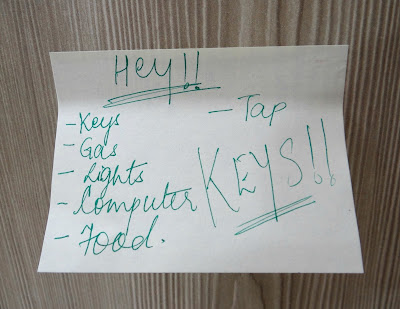 Hey!!
- Keys
- Gas
- Lights
- Computer
- Food.
- Tap
KEYS!!